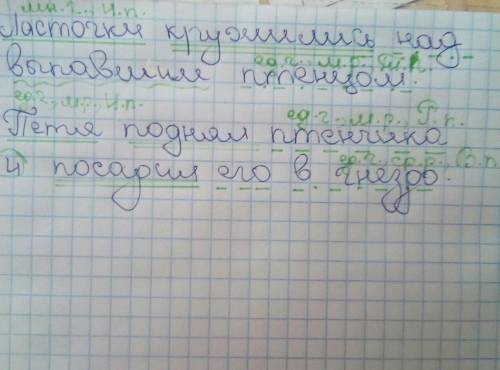 мн.ч., и.п.
Ласточки кружились над
ед.ч., м.р., Т.п.
выпавшим птенцом.
ед.ч., м.р., и.п. ед.ч., м.р., Р.п.
Петя поднял птенчика
ед.ч., ср.р., В.п.
и посадил его в гнездо.